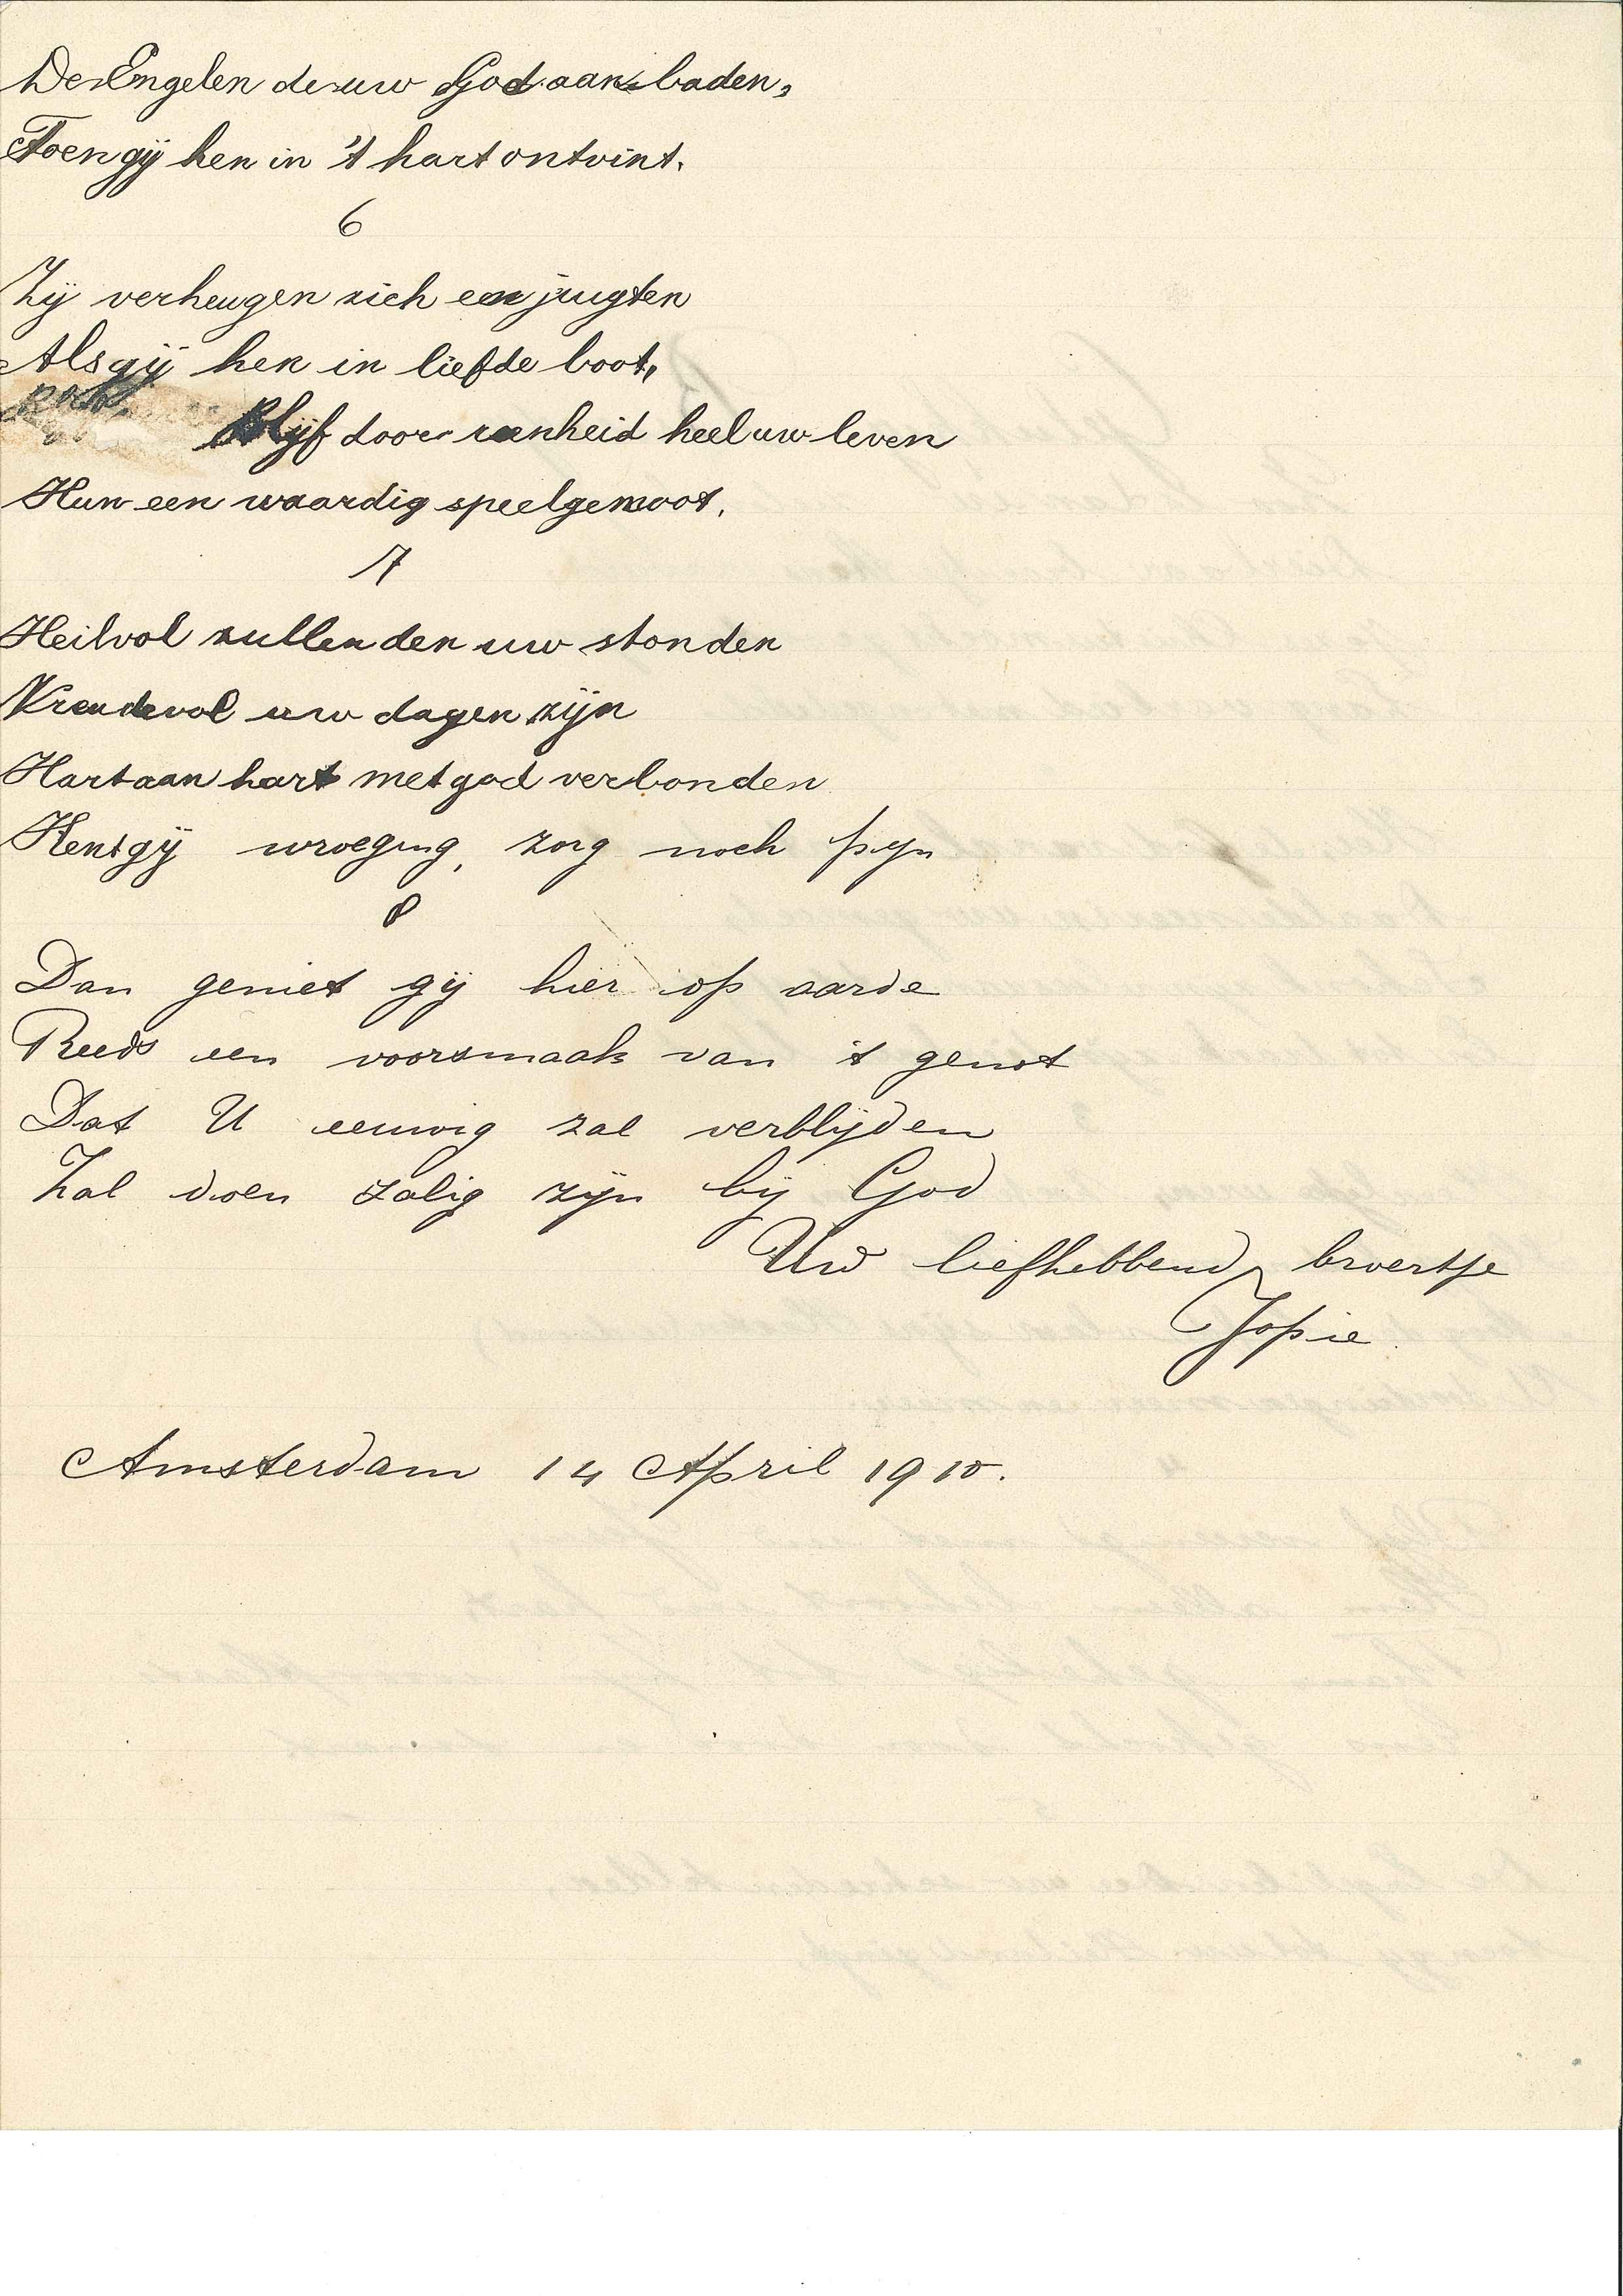 De Engelen de uw God aanbaden,
Toen gij hen in 't hart ontvint.
6
Zij verheugen zich en jugten
Als gij hen in liefde boot,
Blijf door reenheid heel uw leven
Hun een waardig speelgenoot.
7
Heilvol zullen den uw stonden
Vreudevol uw dagen zijn
Hart aan hart met god verbonden
Kent gij wroeging, zorg noch pijn
8
Dan geniet gij hier op aarde
Reeds een voorsmaak van 't genot
Dat U eeuwig zal verblijden
Zal doen zalig zijn bij God
Uw liefhebbend broertje
Jopie.
Amsterdam 14 April 1910.